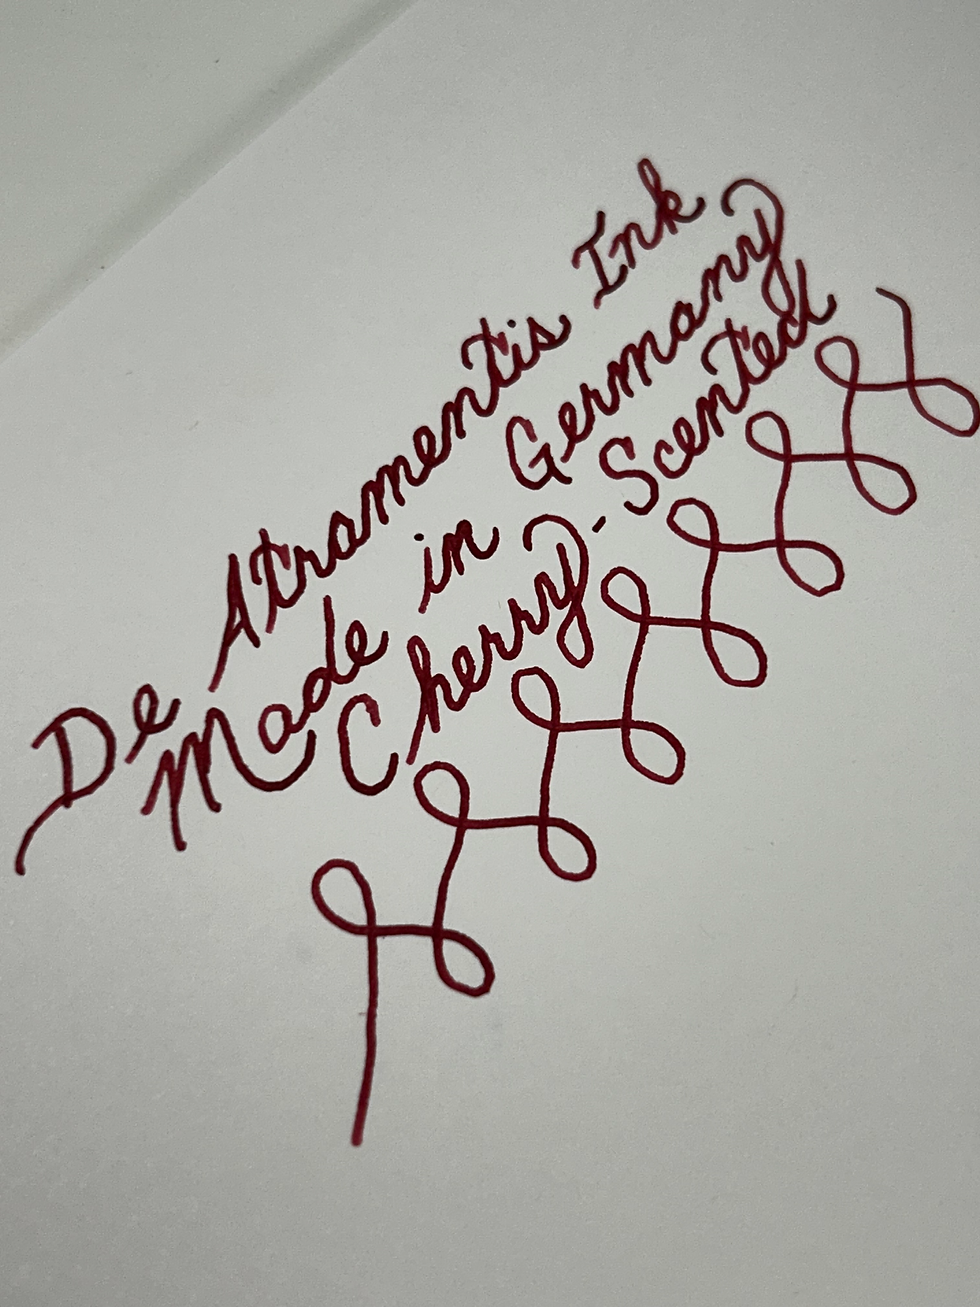 De Atramentis Ink
Made in Germany
Cherry-Scented